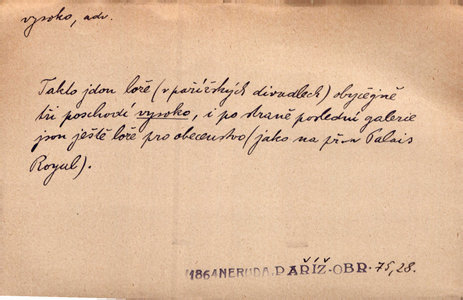 vysoko, adv.
Takto jdou lože (v pařížských divadlech) obyčejně
tři poschodí vysoko, i po straně poslední galerie
jsou ještě lože pro obecenstvo (jako na př. v Palais
Royal).
1864 NERUDA, PAŘÍŽ-OBR. 75, 28.